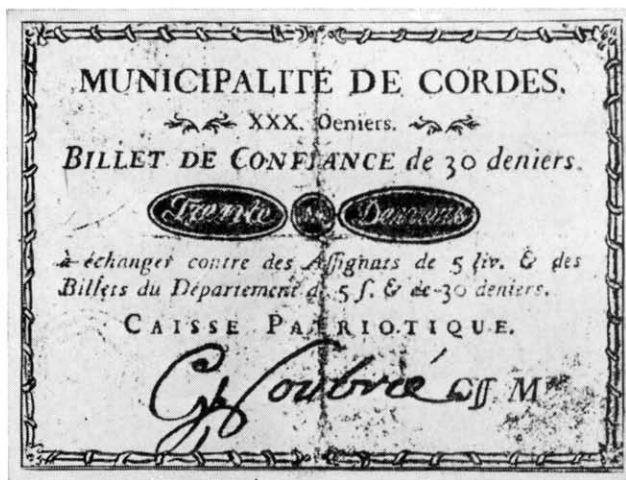 MUNICIPALITÉ DE CORDES.
XXX. Deniers.
BILLET DE CONFIANCE de 30 deniers.
Trente Deniers
à échanger contre des Aſſignats de 5 liv. & des
Billets du Département de 5 ſ. & de 30 deniers.
CAISSE PATRIOTIQUE.
Soubrié